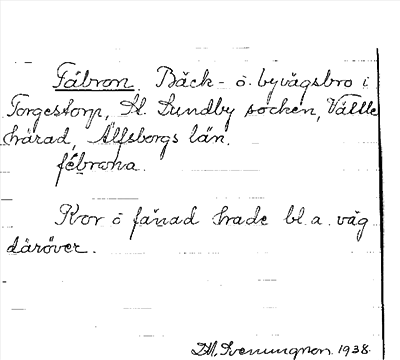 Fåbron. Bäck- o. byvägsbro i
Torgestorp, St. Lundby socken, Vättle
härad, Älfsborgs län.
fébrona.
Kor o fänad hade bl. a. väg
däröver.
1938.